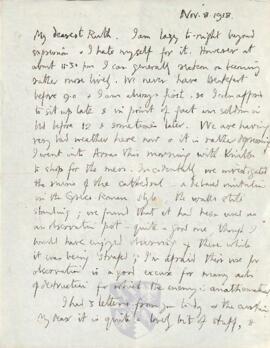 Nov. 8. 1918.
My dearest Ruth. I am lazy to-night beyond
expression & I hate myself for it. However at
about 10.30 p.m I can generally reckon on becoming
rather more lively. We never have breakfast
before 9.0 & I am always first. so I can afford
to sit up late & in point of fact am seldom in
bed before 12 & sometimes later. We are having
very bad weather here now & it is rather depressing
I went into Arras this morning with
to shop for the mess. Incidentally we investigated
the ruins of the cathedral – a debased imitation
in the Graeco Roman style. The walls still
standing; we found that it had been used as
an observation post – quite a good one though I
would have enjoyed observing there while
it was being 'strafed'; I'm afraid this use for
observation is a good excuse for many acts
of destruction for which the enemy is anathematised
I had 3 letters from you to-day & the curtain
My dear it is quite a lovely bit of stuff, &